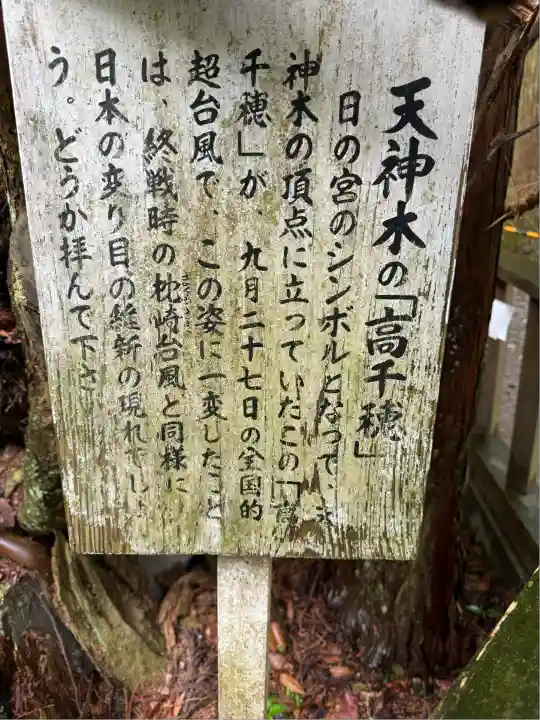 天神木の「高千穂」
日の宮のシンボルとなって、天
神木の頂点に立っていたこの「高
千穂」が、九月二十七日の全国的
超台風で、この姿に一変したこと
は、終戦時の枕崎台風と同様に
日本の変り目の維新の現れでしょ
う。どうか拝んで下さ